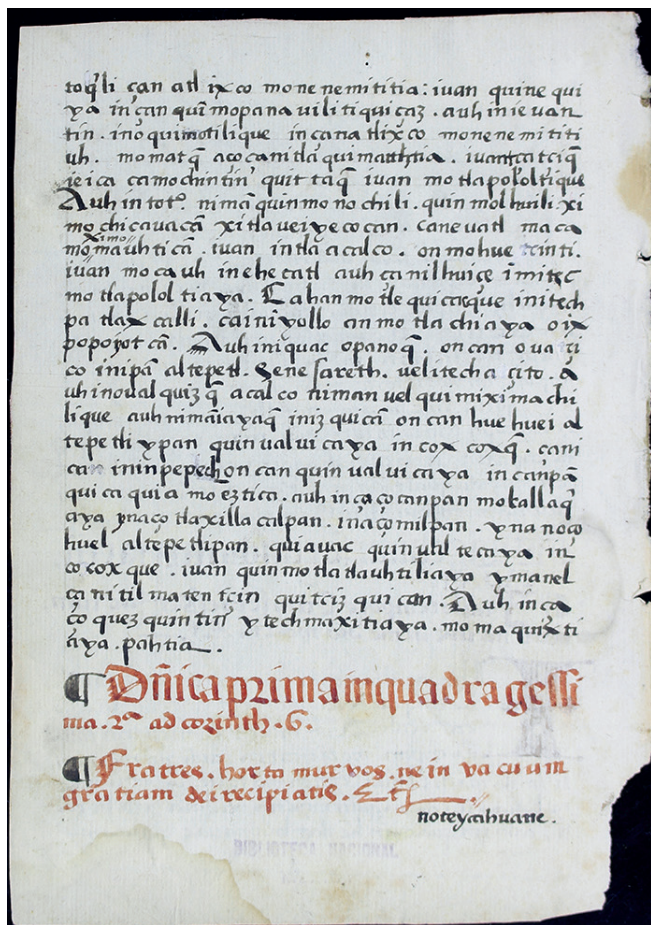 toq̃li çan atl ixco mone nemititia: iuan quine qui
ya in çan quĩ mopana uiliti quiçaz. auh in ie uan
tin. in o quimotilique in çan atlixco monenemititi
uh. momatq̃ aço canitla qui
ie ica ca mochintin quittaq̃ iuan motlapololtique
Auh in toto nimã quinmononochili. quinmolhuili xi
mochicauacã xitlaueiyecocan. ca neuatl maca
ximo
momauhticã. iuan intla acalco. onmohuetzinti.
iuan mocauh in ehecatl auh ça nilhuice imitec
motlapololtiaya. Ca han motle quicacque initech
pa tlaxcalli. ca iniyollo an motlachiaya oix
popoyotcã. Auh iniquac opanoq̃. oncan ouaçi
co inipan altepetl. Genesareth. uelitech açito. A
uh in oualquizq̃ acalco niman uel quimiximachi
lique auh nimã iayaq̃ inizquicã oncan huehuei al
tepetli ypan quinualuicaya in cocoxq̃. cani
can ininpepech oncan quinualuicaya in canpã
quicaquia moeztica. auh in caçocanpan mokallaq
aya ynaço tlaxillacalpan. inaço milpan. ynanoço
huel altepetlipan. quiauac quinualtecaya in
cocoxque. iuan quinmotlatlauhtiliaya ymanel
çan itilmatentzin quitzizquican. Auh inca
çoquezquintin ytech maxitiaya. momaquixti
aya. pahtia.
¶ Dñica prima in quadragessi
ma. 2ª ad corinth. 6.
¶ Fratres. hortamur uos. ne in uacuum
gratiam dei recipiatis.
noteycahuane.
BIBLIOTECA NACIONAL